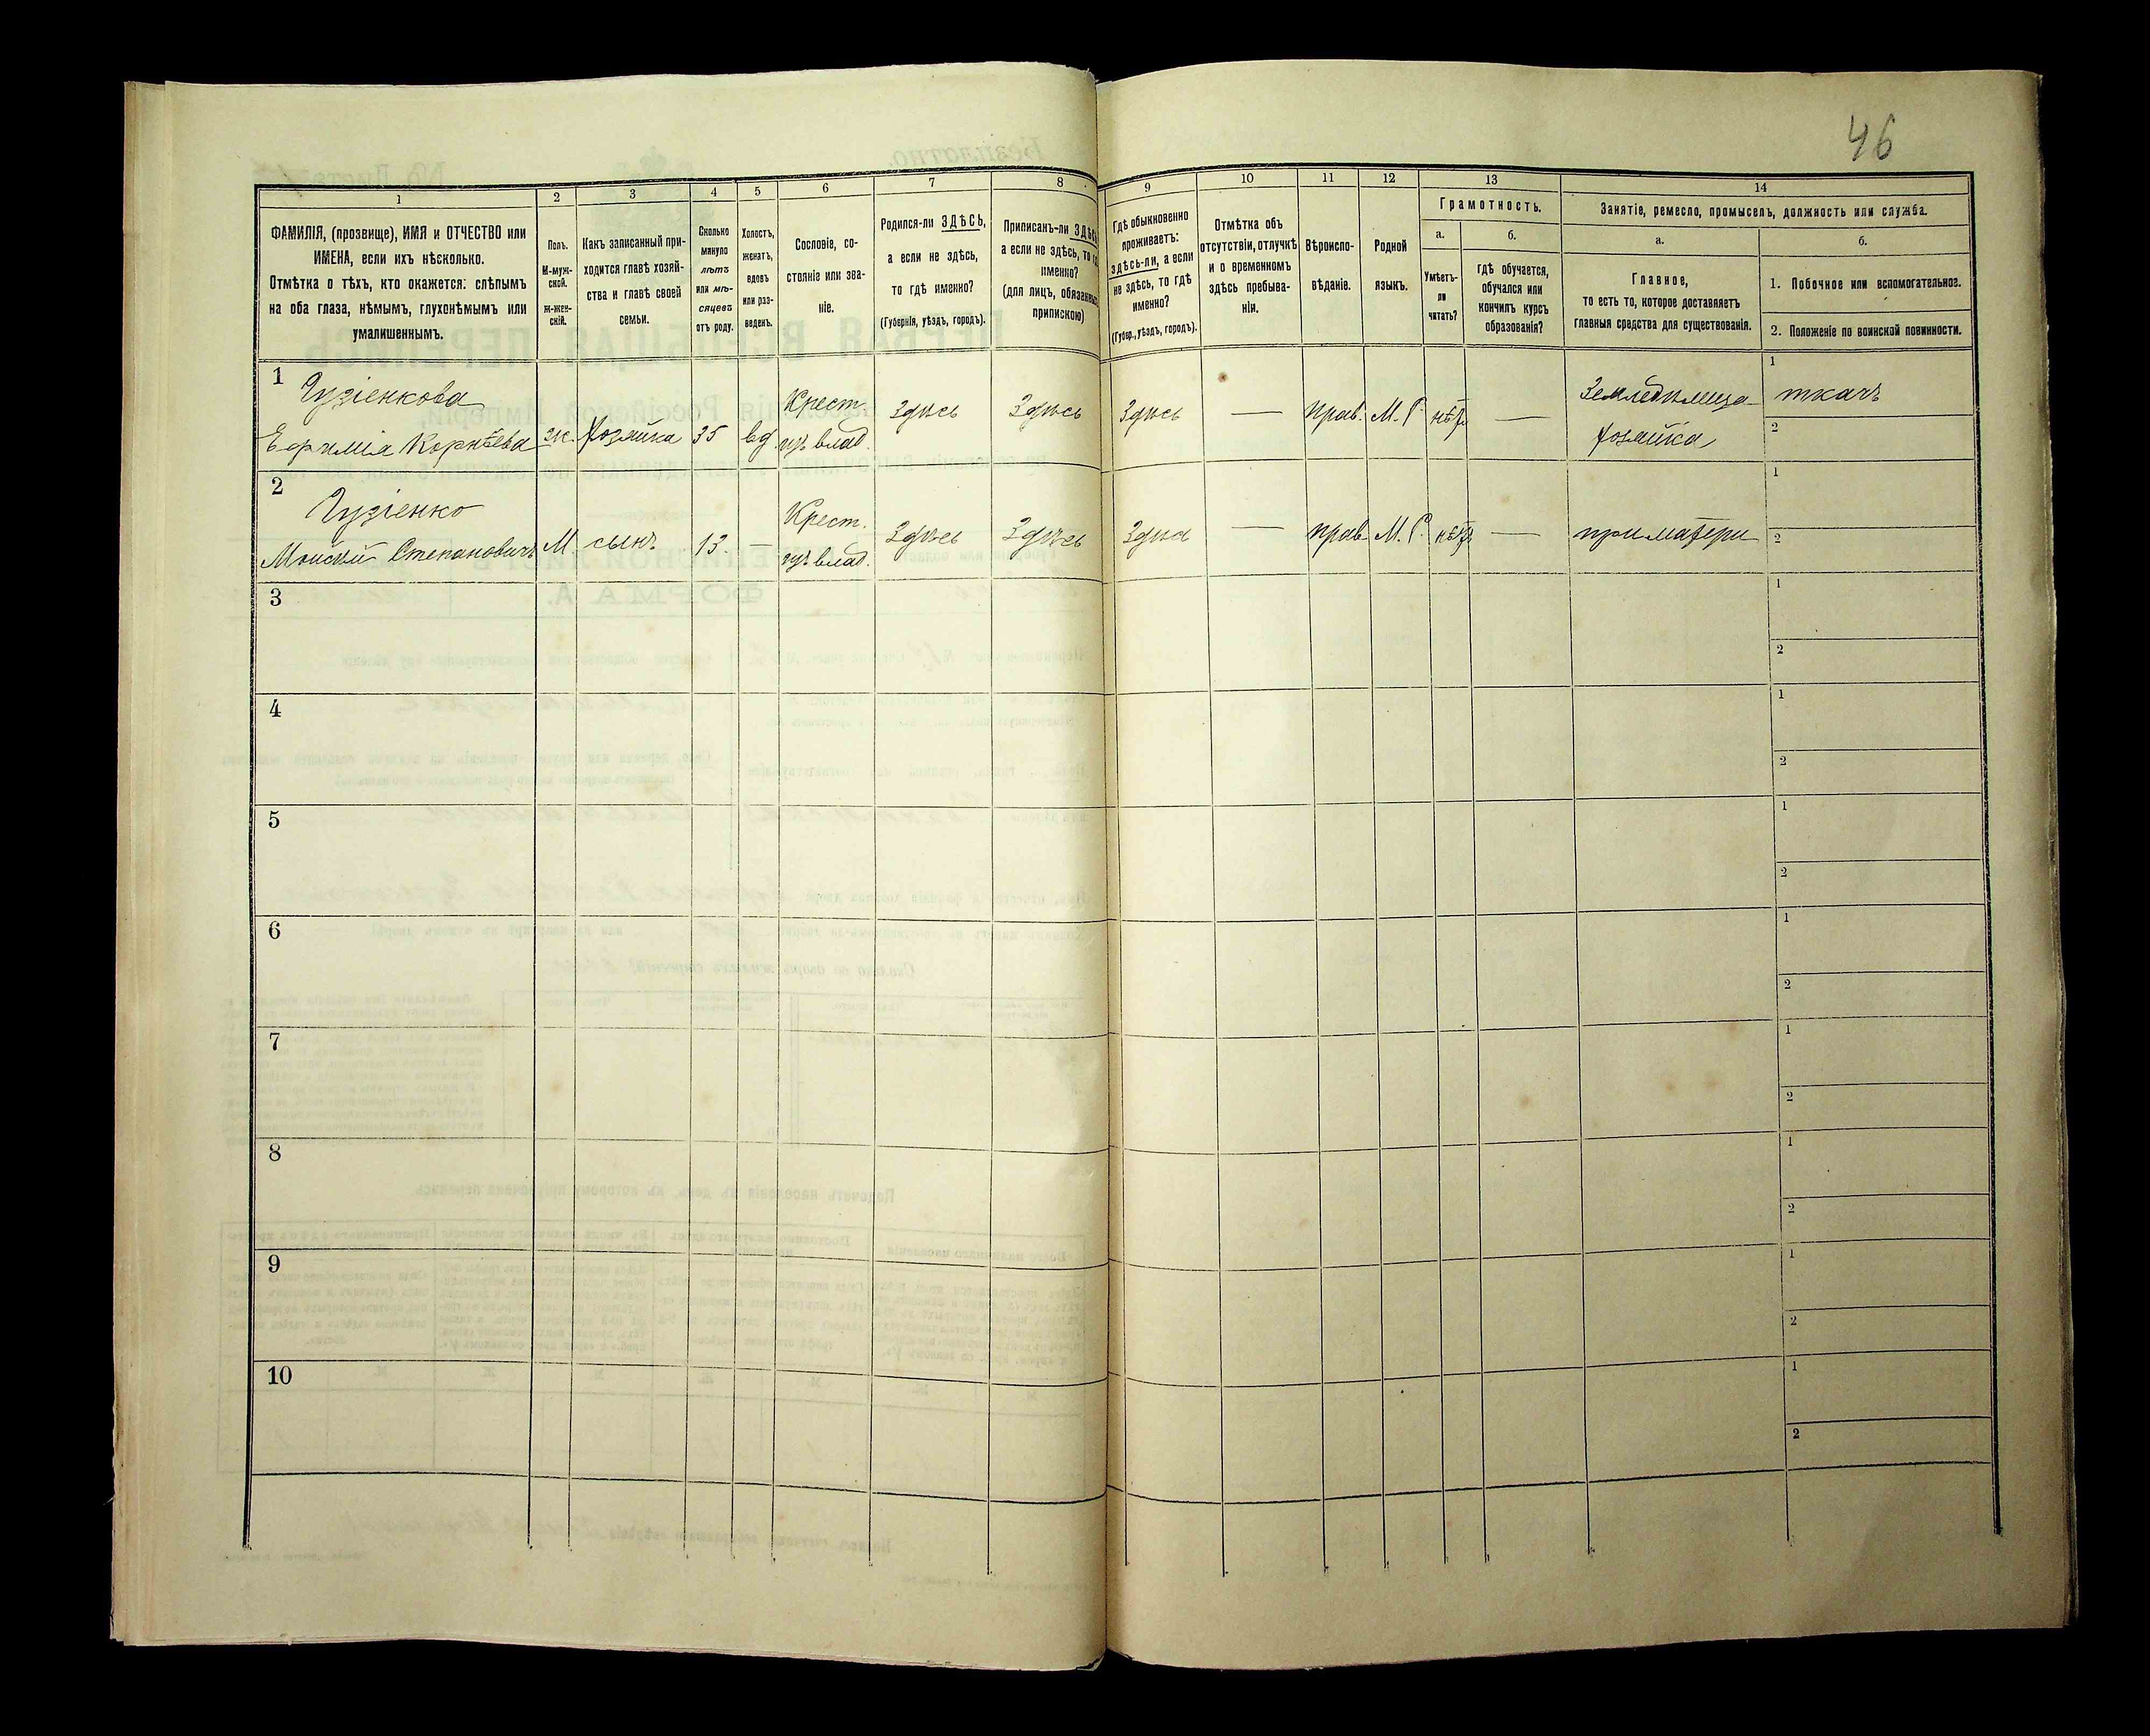 46
1
2
3
4
5
6
7
8
9
10
11
12
13
14
ФАМИЛІЯ, (прозвище), ИМЯ и ОТЧЕСТВО или
ИМЕНА, если ихъ нѣсколько.
Отмѣтка о тѣхъ, кто окажется: слѣпымъ
на оба глаза, нѣмымъ, глухонѣмымъ или
умалишеннымъ.
Полъ.
М-муж-
ской.
Ж-жен-
скій.
Какъ записанный при-
ходится главѣ хозяй-
ства и главѣ своей
семьи.
Сколько
минуло
лѣтъ
или мѣ-
сяцевъ
отъ роду.
Холостъ,
женатъ,
вдовъ
или раз-
веденъ.
Сословіе, со-
стояніе или зва-
ніе.
Родился-ли ЗДѢСЬ,
а если не здѣсь,
то гдѣ именно?
(Губернія, уѣздъ, городъ).
Приписанъ-ли ЗДѢСЬ
а если не здѣсь, то гдѣ
именно?
(для лицъ, обязанныхъ
припискою)
Гдѣ обыкновенно
проживаетъ:
здѣсь-ли, а если
не здѣсь, то гдѣ
именно?
(Губер., уѣздъ, городъ).
Отмѣтка объ
отсутствіи, отлучкѣ
и о временномъ
здѣсь пребыва-
ніи.
Вѣроиспо-
вѣданіе.
Родной
языкъ.
Грамотность.
а.
Умѣетъ-
ли
читать?
б.
гдѣ обучается,
обучался или
кончилъ курсъ
образованія?
Занятіе, ремесло, промыселъ, должность или служба.
а.
Главное,
то есть то, которое доставляетъ
главныя средства для существованія.
б.
1. Побочное или вспомогательное.
2. Положеніе по воинской повинности.
1 Гузіенкова Крест. Земледѣлица 1 ткачъ
Евфимія Корнѣева ж. хозяйка 35 вд. изъ влад. Здѣсь Здѣсь Здѣсь — прав. М. Р. нѣтъ — хозяйка 2
2 Гузіенко Крест. 1
Моисей Степановичъ М. сынъ 13. — изъ влад. Здѣсь Здѣсь Здѣсь — прав. М. Р. нѣтъ — при матери 2
3 1
2
4 1
2
5 1
2
6 1
2
7 1
2
8 1
2
9 1
2
10 1
2